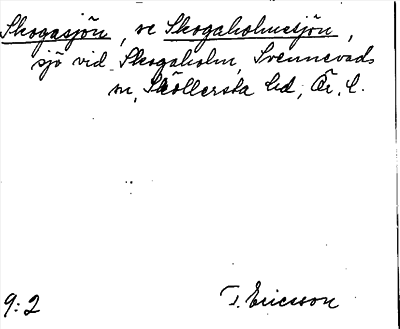 Skogasjön, se Skogaholmssjön,
sjö vid Skogaholm, Svennevads
sn, Sköllersta hd, Ör. l.
9:2 T. Ericsson